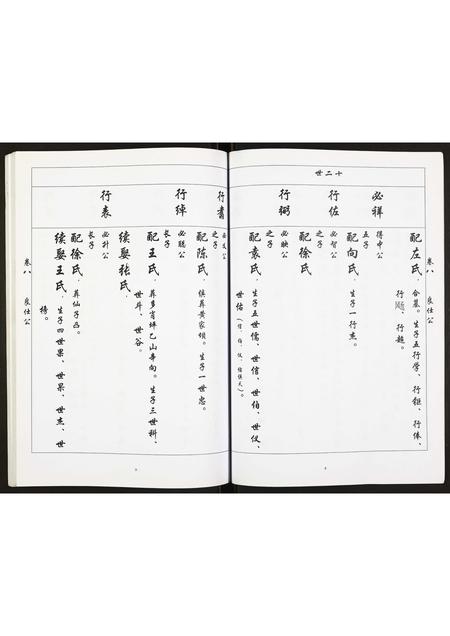 卷八 良仕公
十二世
配左氏,合墓。生子五行学、行银、行体、
行顺、行超。
必祥
得中公
五子
配向氏,生子一行杰。
行佐
必智公
之子
配徐氏
行弼
必映公
之子
配袁氏,生子五世儒、世信、世伯、世仪、
世佑(信、伯、仪、佑俱夭)。
行
必文公
之子
配陈氏,俱葬黄家坝。生子一世忠。
行绰
必聪公
长子
配王氏,葬多肖坪乙山辛向。生子三世科、
世斗、世谷。
续娶张氏
行表
必升公
长子
配徐氏,葬仙子凸。
续娶王氏,生子四世果、世杲、世杰、世
榜。
卷八 良仕公